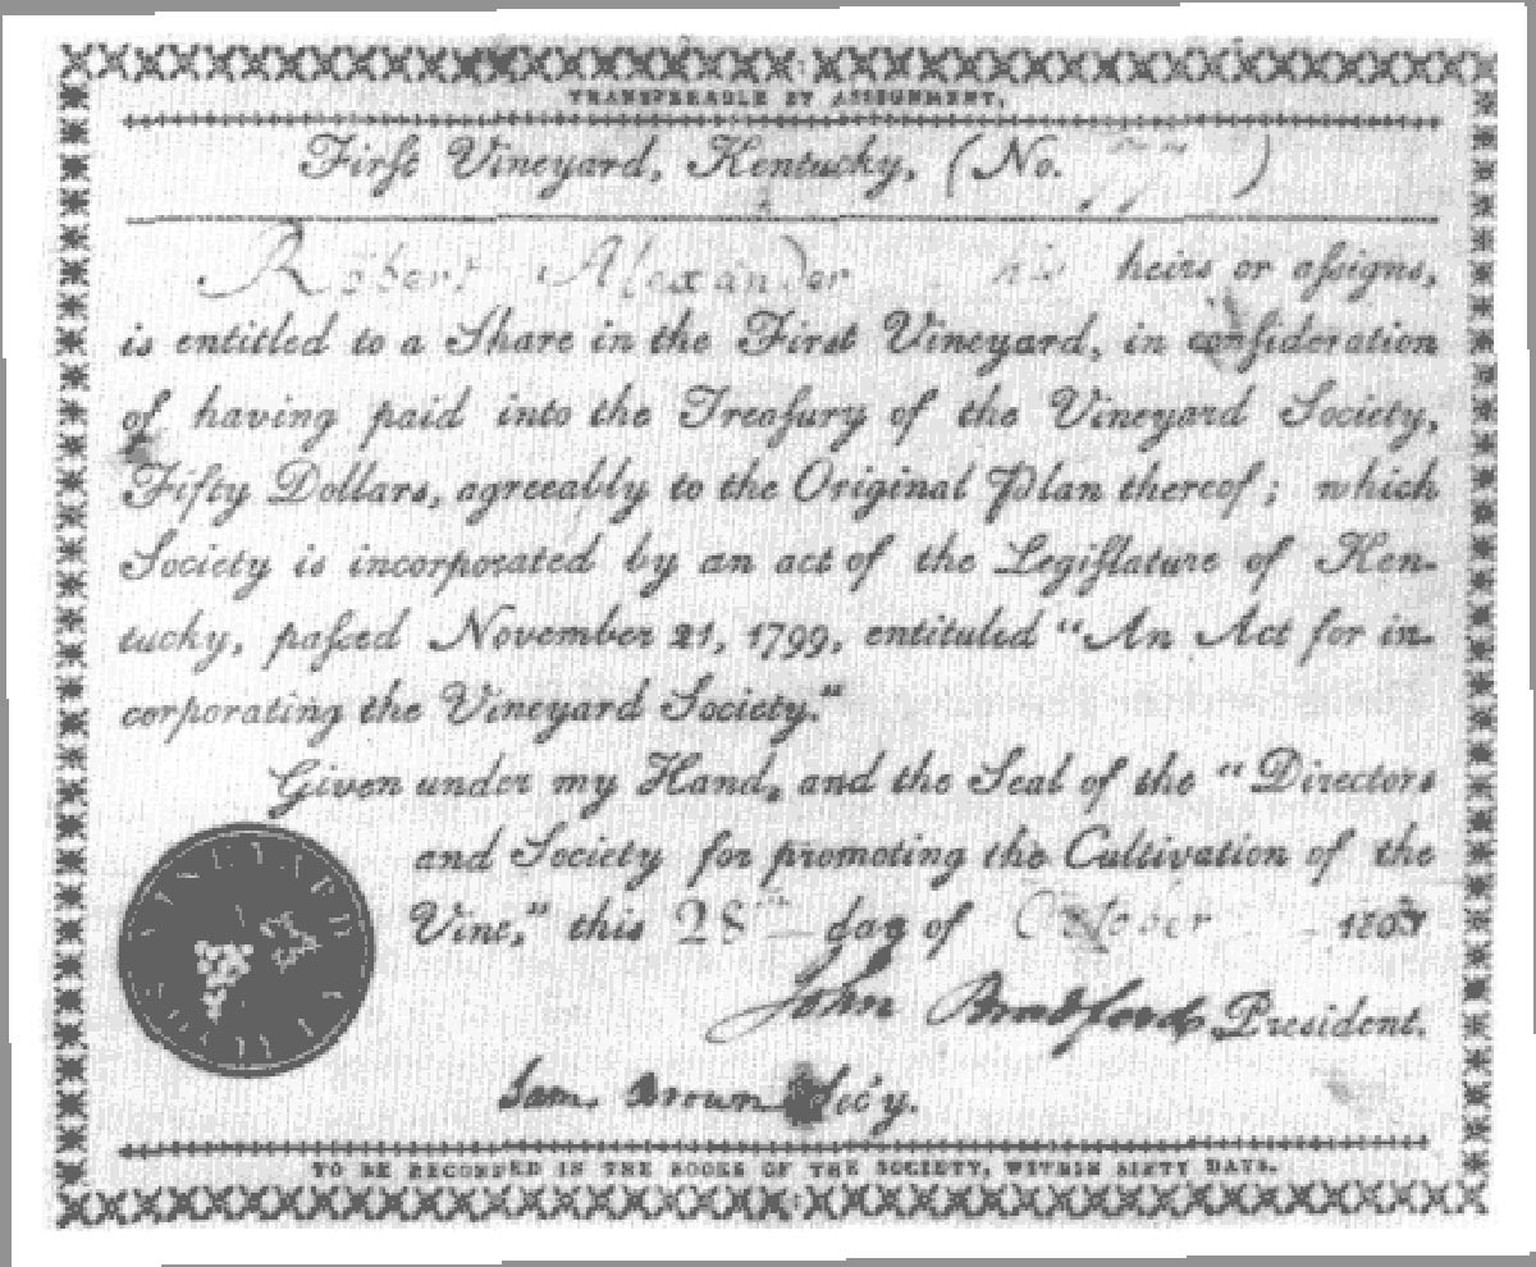 TRANSFERABLE BY ASSIGNMENT,
Firſt Vineyard, Kentucky, (No. 77)
Robert Alexander his heirs or aſsigns,
is entitled to a Share in the First Vineyard, in conſideration
of having paid into the Treaſury of the Vineyard Society,
Fifty Dollars, agreeably to the Original Plan thereof; which
Society is incorporated by an act of the Legiſlature of Ken-
tucky, paſsed November 21, 1799, entituled "An Act for in-
corporating the Vineyard Society."
Given under my Hand, and the Seal of the "Directors
and Society for promoting the Cultivation of the
Vine," this 28th day of October
John Bradford, President.
Sam. Brown Sec'y.
TO BE RECORDED IN THE BOOKS OF THE SOCIETY, WITHIN SIXTY DAYS.